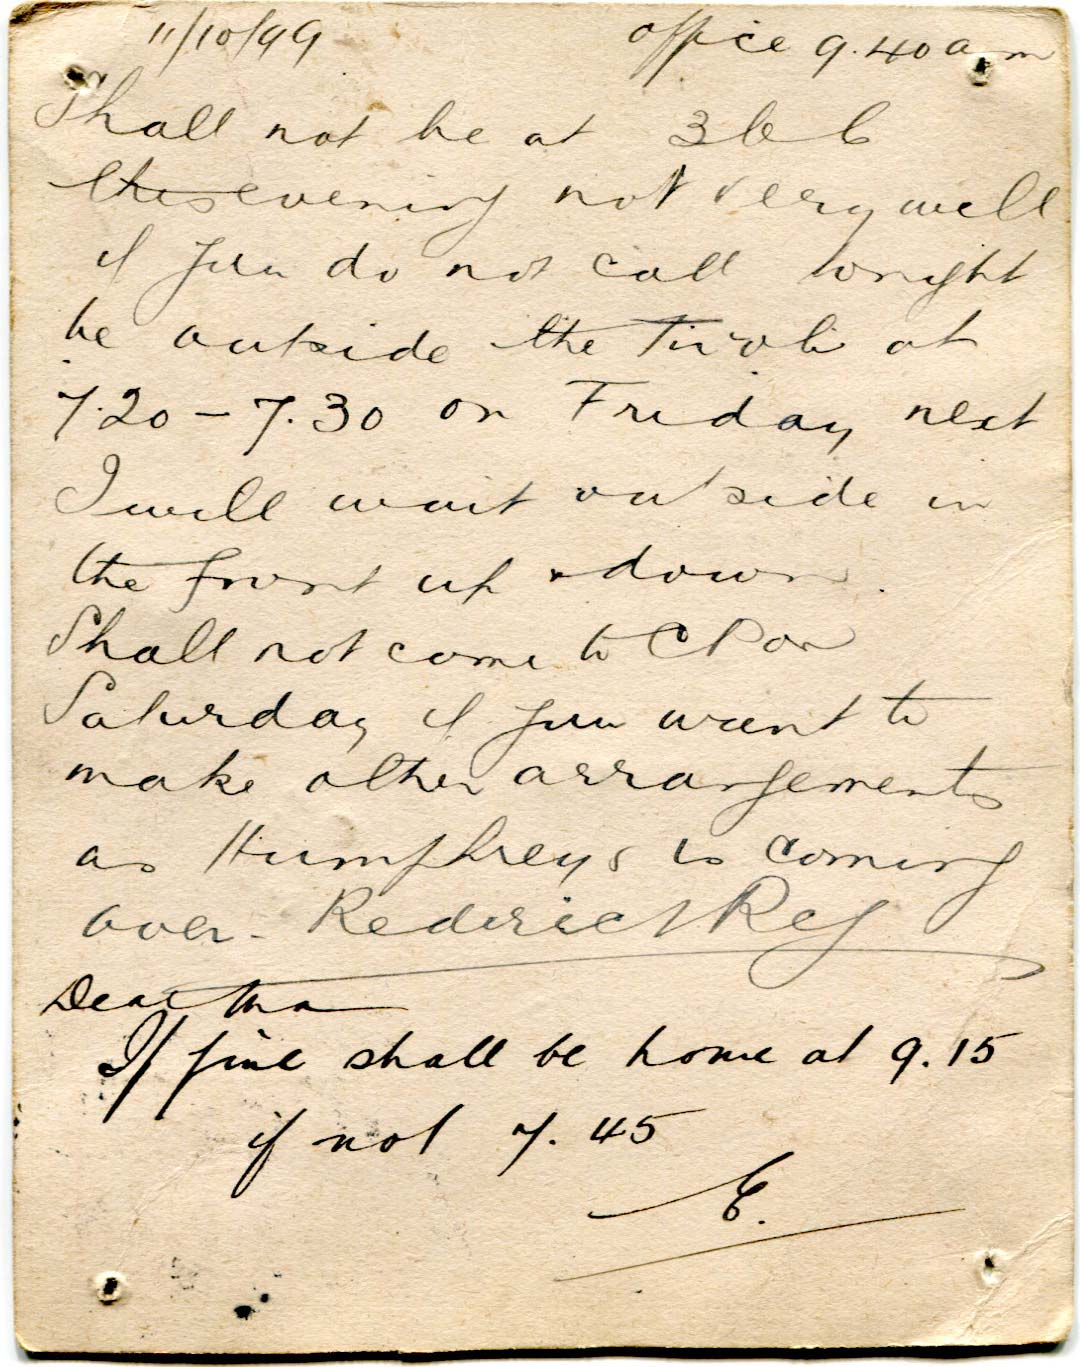 11/10/99 office 9.40 am
Shall not be at 36
this evening not very well
if you do not call tonight
be outside the Tivoli at
7.20 – 7.30 on Friday next
I will wait outside in
the front up & down.
Shall not come to CP on
Saturday if you want to
make other arrangements
as Humphreys is coming
over. Reg
Dear Ma
If fine shall be home at 9.15
if not 7.45
E.